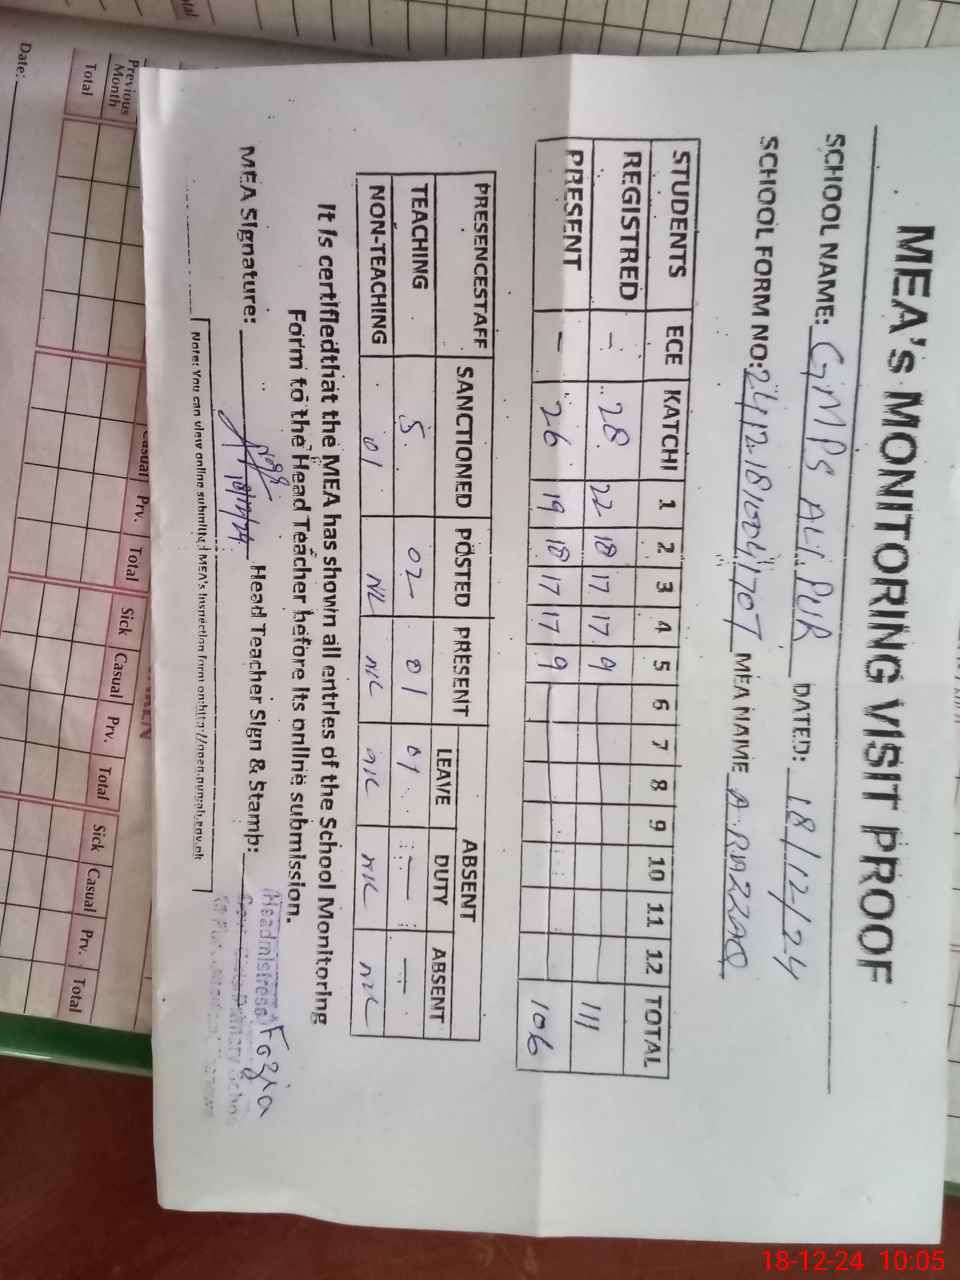 MEA's MONITORING VISIT PROOF
SCHOOL NAME: GMPS ALI PUR DATED: 18/12/24
SCHOOL FORM NO: MEA NAME A. RAZZAQ
STUDENTS ECE KATCHI 1 2 3 4 5 6 7 8 9 10 11 12 TOTAL
REGISTRED - 28 22 18 17 17 9 111
PRESENT - 26 19 18 17 17 9 106
PRESENCESTAFF SANCTIONED POSTED PRESENT ABSENT
LEAVE DUTY ABSENT
TEACHING 5 02 01 01 - -
NON-TEACHING 01 NIL NIL NIL NIL NIL
It is certifiedthat the MEA has shown all entries of the School Monitoring
Form to the Head Teacher before its online submission.
MEA Signature: 18/12/24 Head Teacher Sign & Stamp: Fozia
Headmistress
Note: You can view online submitted MEA's Inspection form on
Date:
Previous Month
Total
Casual Prv. Total Sick Casual Prv. Total Sick Casual Prv. Total
18-12-24 10:05